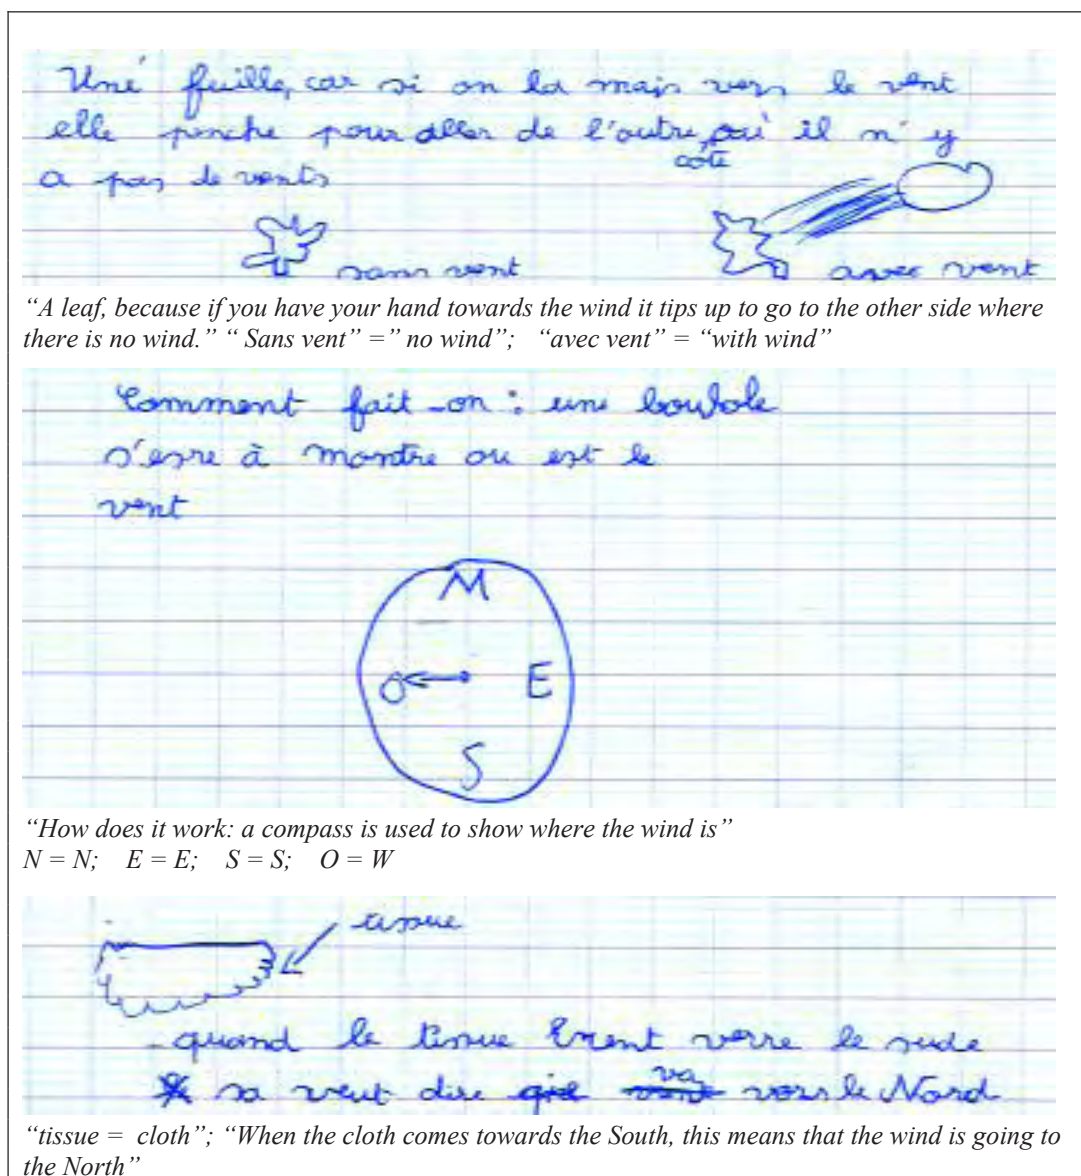 Une feuille, car si on la main vers le vent
elle penche pour aller de l'autre où il n'y
côté
a pas de vents
sans vent
avec vent
“A leaf, because if you have your hand towards the wind it tips up to go to the other side where
there is no wind.” “ Sans vent” =” no wind”; “avec vent” = “with wind”
Comment fait-on : une
à montre ou est le
vent
N
O E
S
“How does it work: a compass is used to show where the wind is”
N = N; E = E; S = S; O = W
tissue
- quand le tissue vient verre le sude
sa veut dire va vers le Nord
“tissue = cloth”; “When the cloth comes towards the South, this means that the wind is going to
the North”